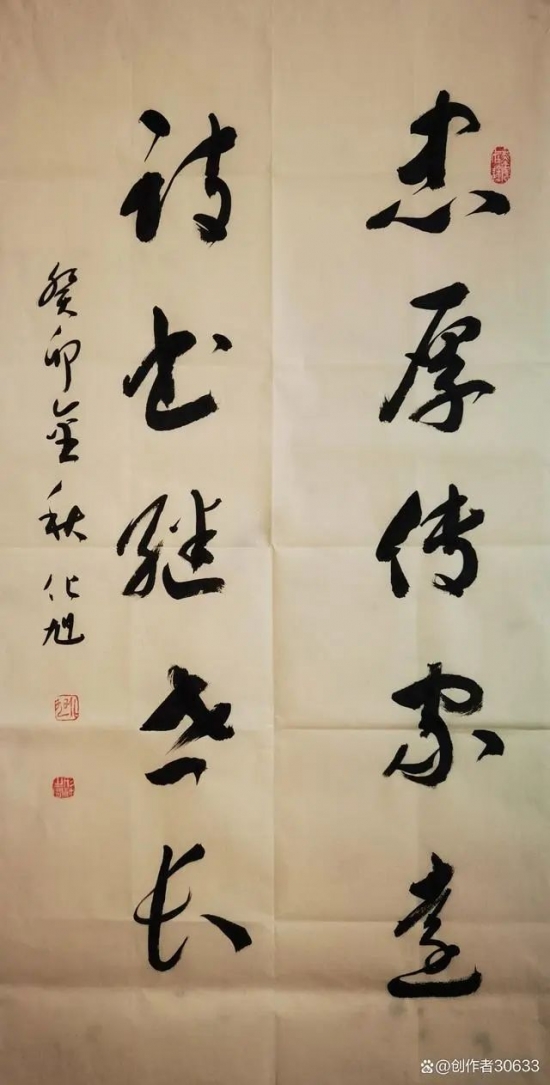 忠厚传家远
诗书继世长
癸卯金秋化旭
@创作者30633